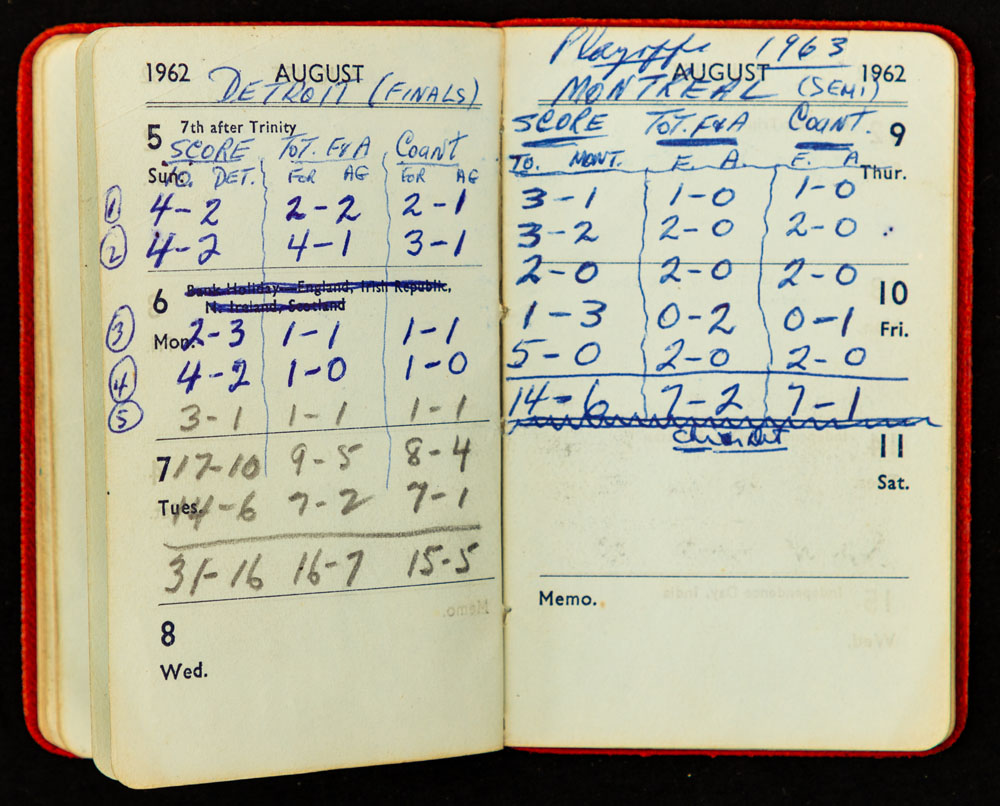 1962 AUGUST
DETROIT (FINALS)
5 7th after Trinity
SCORE TOT. F&A Count
Sun. TO. DET. FOR AG FOR AG
1 4-2 2-2 2-1
2 4-2 4-1 3-1
6 Bank Holiday—England, Irish Republic,
N. Ireland, Scotland
3 Mon. 2-3 1-1 1-1
4 4-2 1-0 1-0
5 3-1 1-1 1-1
7 17-10 9-5 8-4
Tues. 14-6 7-2 7-1
31-16 16-7 15-5
8
Wed.
Playoffs 1963
AUGUST 1962
MONTREAL (SEMI)
SCORE TOT. F&A Count. 9
TO. MONT. F. A. F. A. Thur.
3-1 1-0 1-0
3-2 2-0 2-0
2-0 2-0 2-0
10
1-3 0-2 0-1
Fri.
5-0 2-0 2-0
14-6 7-2 7-1
11
Sat.
Memo.